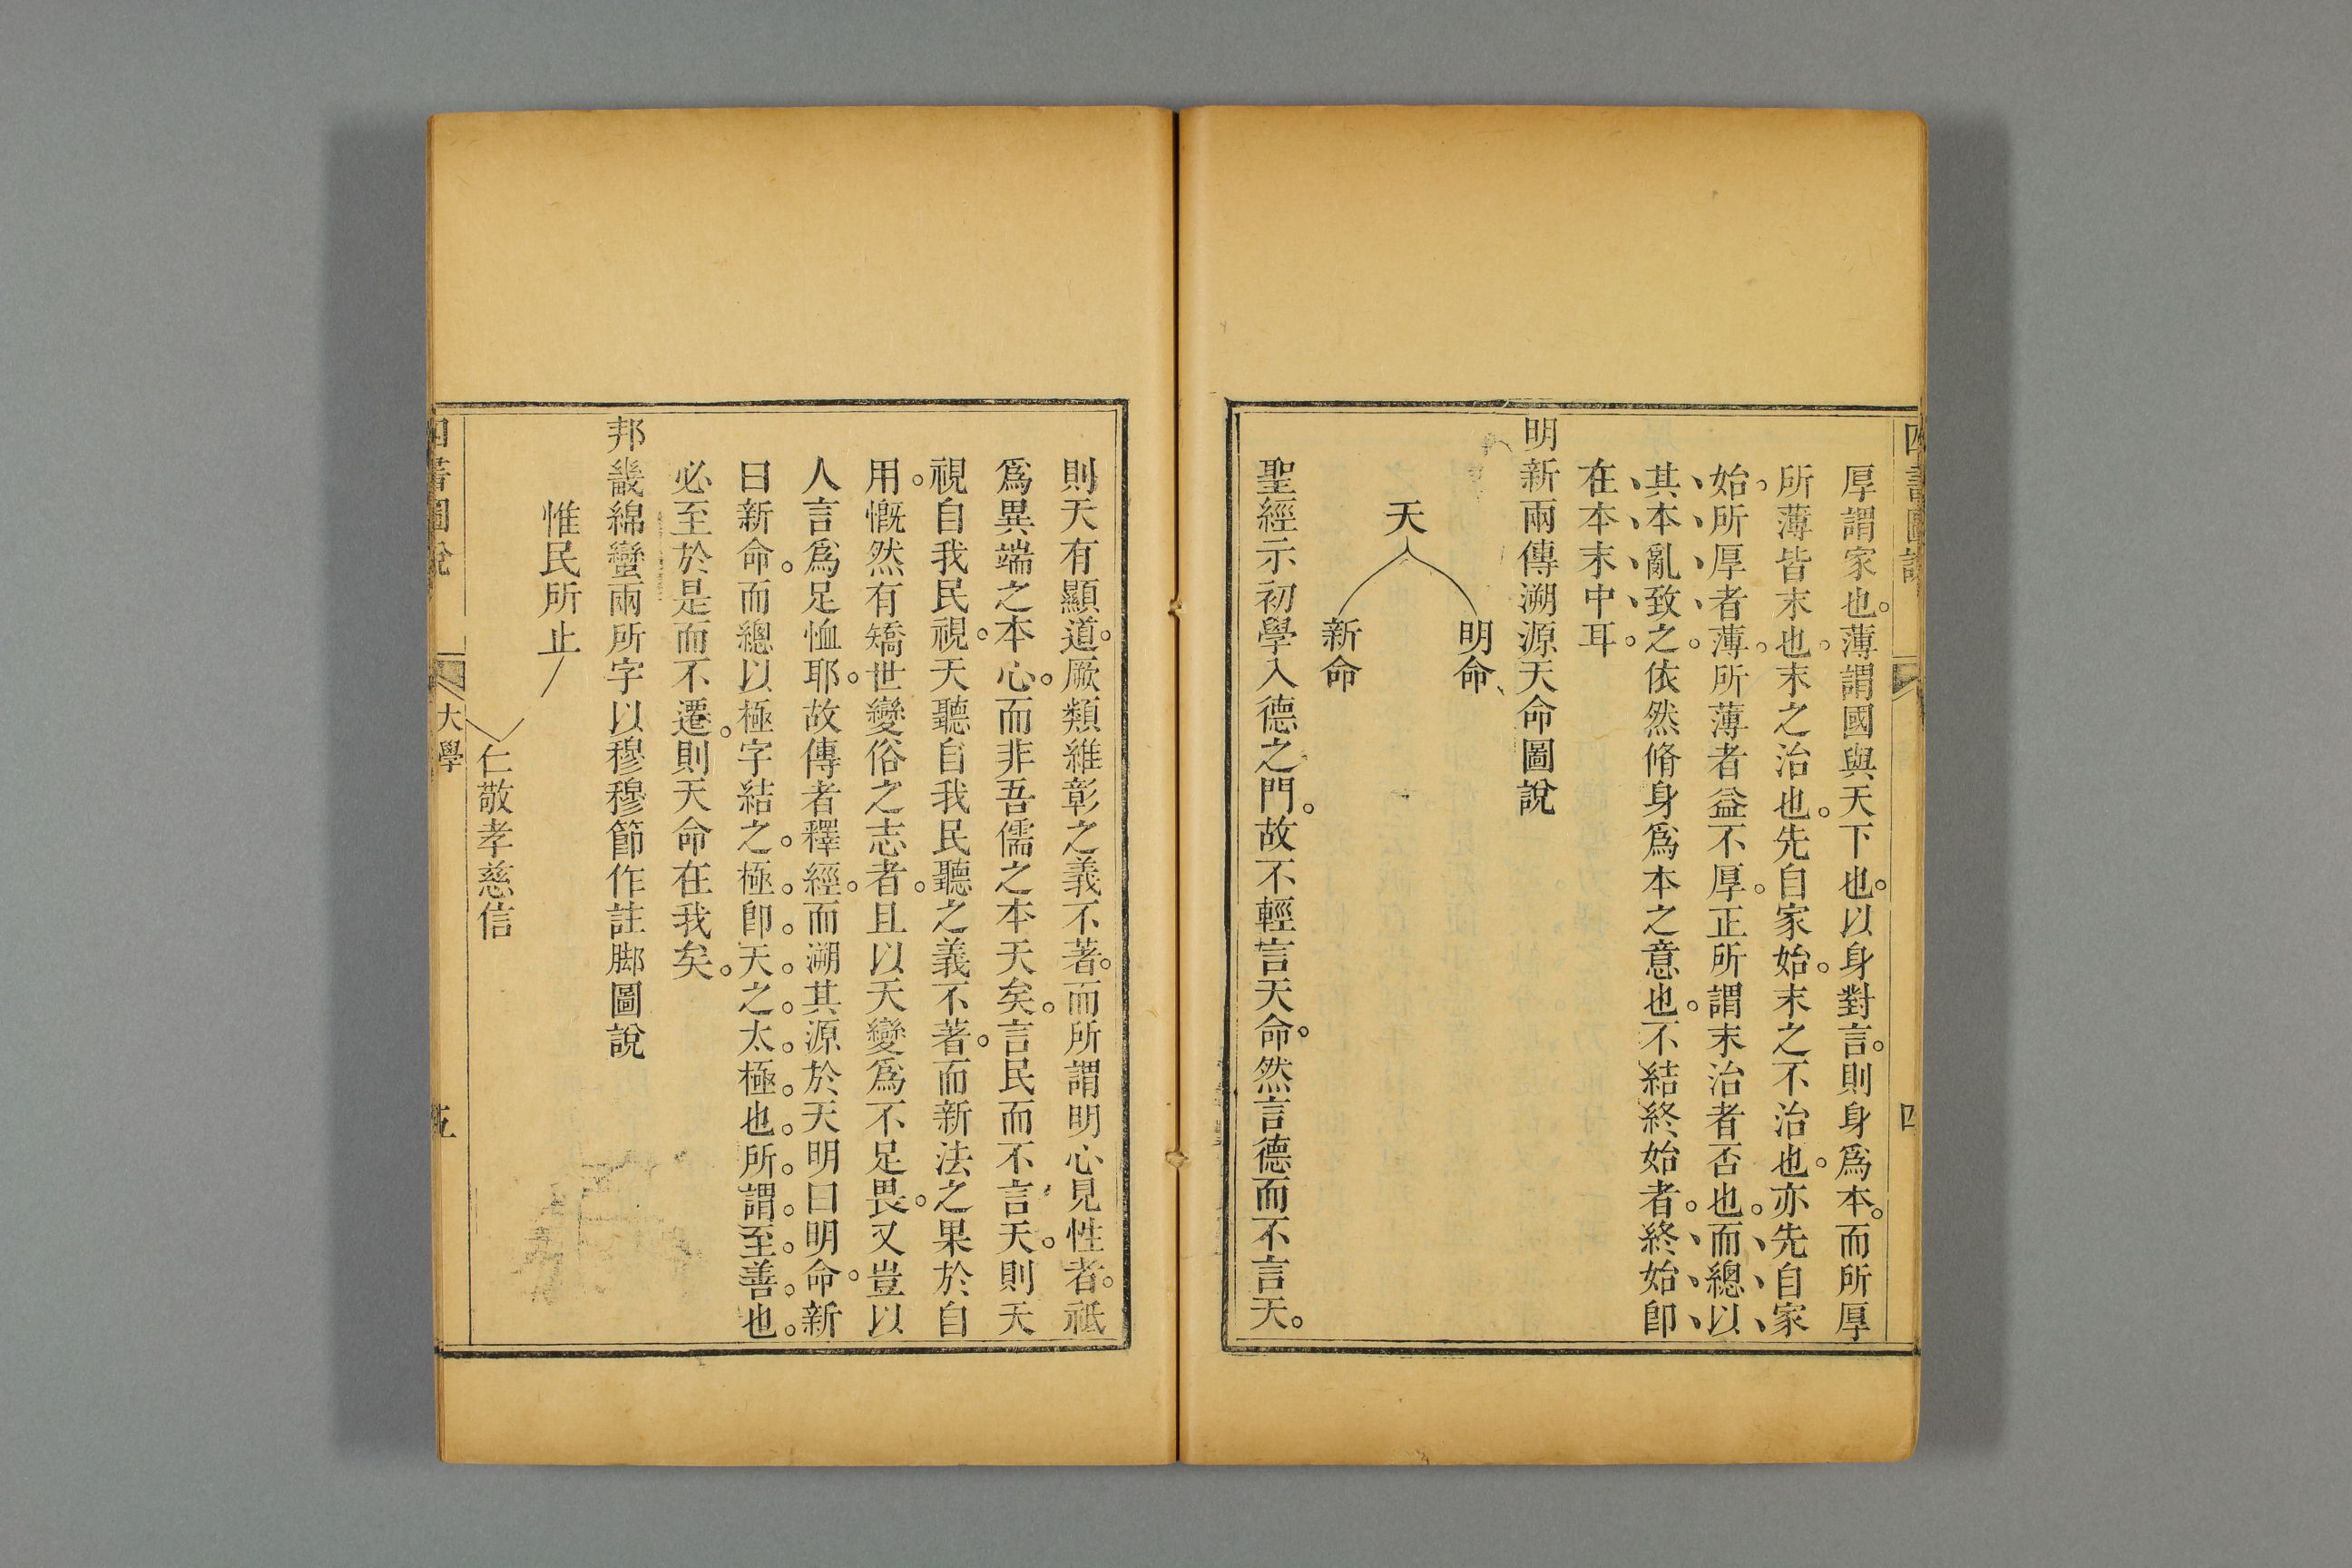 四書圖說
四
厚謂家也。薄謂國與天下也。以身對言。則身爲本。而所厚
所薄皆末也。末之治也。先自家始。末之不治也。亦先自家
始。所厚者薄。所薄者益不厚。正所謂末治者否也。而總以
其本亂致之。依然脩身爲本之意也。不結終始者。終始卽
在本末中耳。
明新兩傳溯源天命圖說
明命
天
新命
聖經示初學入德之門。故不輕言天命。然言德而不言天。
則天有顯道。厥類維彰之義不著。而所謂明心見性者。祗
爲異端之本心。而非吾儒之本天矣。言民而不言天。則天
視自我民視。天聽自我民聽之義不著。而新法之果於自
用。慨然有矯世變俗之志者。且以天變爲不足畏。又豈以
人言爲足恤耶。故傳者釋經。而溯其源於天明曰明命。新
曰新命。而總以極字結之。極。卽天之太極也。所謂至善也。
必至於是而不遷。則天命在我矣。
邦畿綿蠻兩所字以穆穆節作註脚圖說
惟民所止
仁敬孝慈信
四書圖說
大學
五